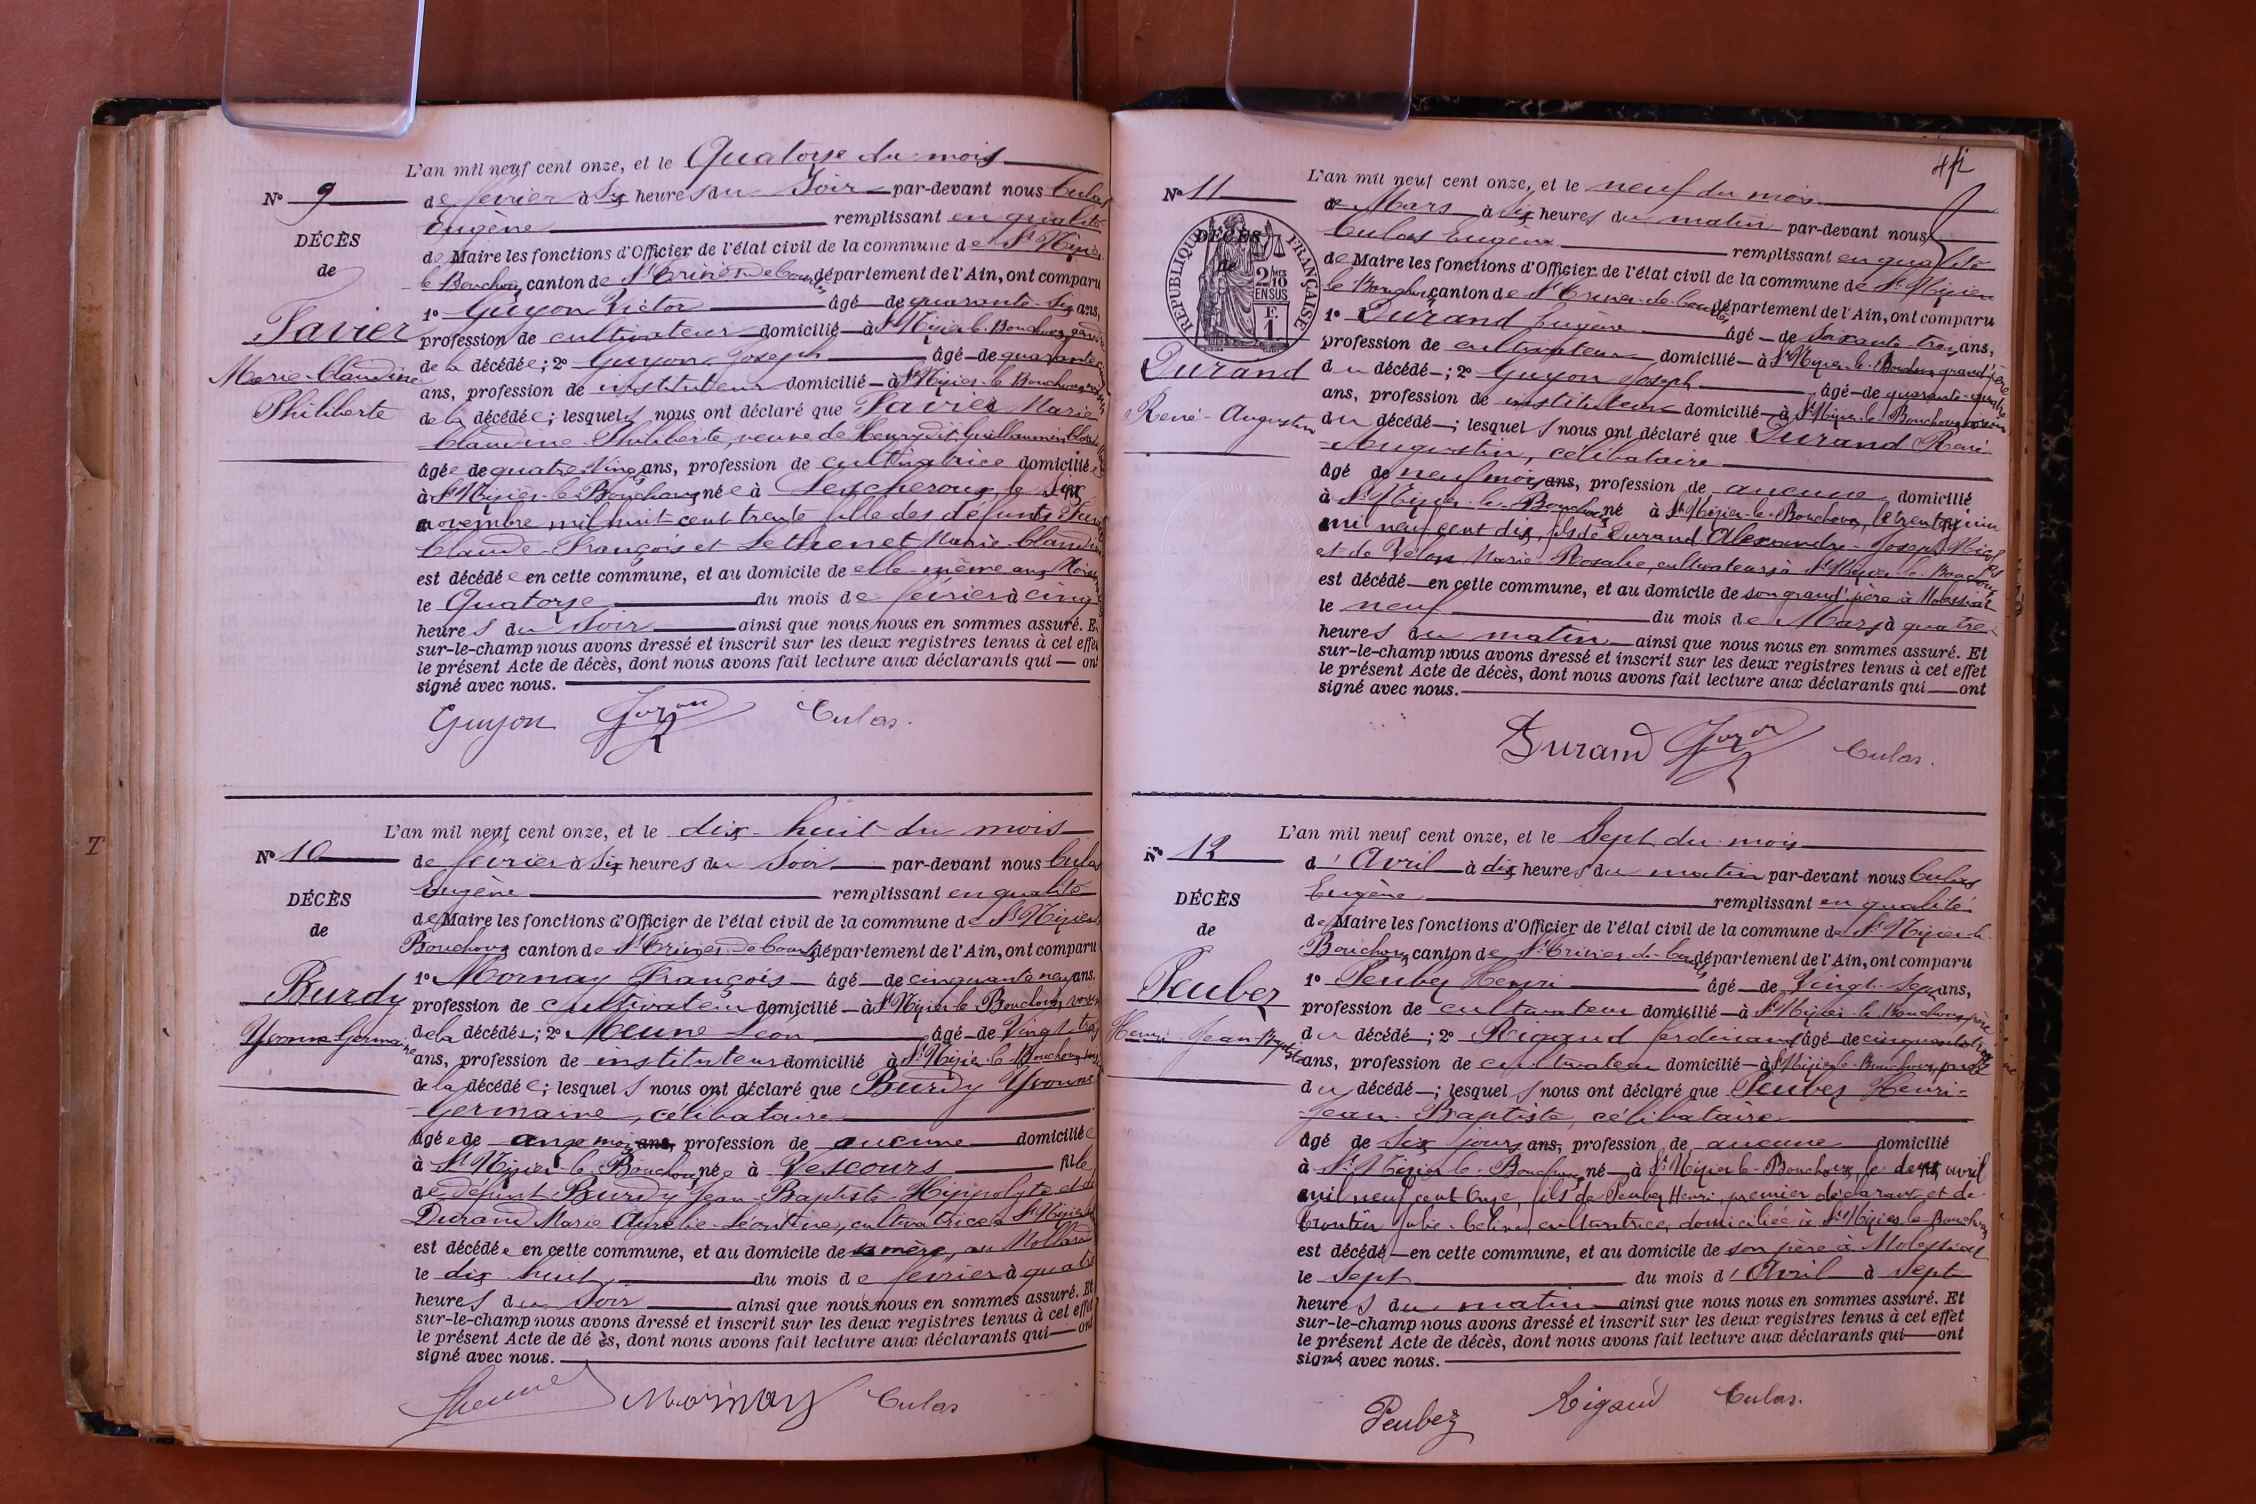 L'an mil neuf cent onze, et le Quatorze du mois
N° 9 de février à six heures du Soir par-devant nous Culas
Eugène remplissant en qualité
DÉCÈS
de Maire les fonctions d'Officier de l'état civil de la commune de St Nizier
de
le Bouchoux canton de St Trivier de Courtes département de l'Ain, ont comparu
1° Guyon Victor âgé de quarante-six ans,
Favier
profession de cultivateur domicilié à St Nizier le Bouchoux
de la décédée; 2° Guyon Joseph âgé de quarante
Marie Claudine
ans, profession de instituteur domicilié à St Nizier le Bouchoux
Philiberte
de la décédée; lesquels nous ont déclaré que Favier Marie
Claudine Philiberte, veuve de Guillaumin
âgée de quatre vingt ans, profession de cultivatrice domiciliée
à St Nizier le Bouchoux née à Lescheroux, le
novembre mil huit cent trente fille des défunts
Claude-François et Marie Claudine
est décédée en cette commune, et au domicile de elle-même aux
le Quatorze du mois de février à cinq
heures du Soir ainsi que nous nous en sommes assuré. Et
sur-le-champ nous avons dressé et inscrit sur les deux registres tenus à cet effet
le présent Acte de décès, dont nous avons fait lecture aux déclarants qui ont
signé avec nous.
Guyon Guyon Culas.
L'an mil neuf cent onze, et le dix-huit du mois
N° 10 de février à six heures du Soir par-devant nous Culas
Eugène remplissant en qualité
DÉCÈS
de Maire les fonctions d'Officier de l'état civil de la commune de St Nizier
de
Bouchoux canton de St Trivier de Courtes département de l'Ain, ont comparu
1° Mornay François âgé de cinquante neuf ans.
Burdy
profession de cultivateur domicilié à St Nizier le Bouchoux, voisin
Yvonne Germaine
de la décédée; 2° Meune Léon âgé de Vingt trois
ans, profession de instituteur domicilié à St Nizier le Bouchoux
de la décédée; lesquels nous ont déclaré que Burdy Yvonne
Germaine, célibataire
âgée de onze mois ans, profession de aucune domiciliée
à St Nizier le Bouchoux née à Vescours fille
de défunt Burdy Jean-Baptiste-Hippolyte et de
Durand Marie Aurélie Léontine, cultivatrice à St Nizier
est décédée en cette commune, et au domicile de sa mère, au Mollard
le dix huit du mois de février à quatre
heures du Soir ainsi que nous nous en sommes assuré. Et
sur-le-champ nous avons dressé et inscrit sur les deux registres tenus à cet effet
le présent Acte de dé ès, dont nous avons fait lecture aux déclarants qui ont
signé avec nous.
Meune Mornay Culas
L'an mil neuf cent onze, et le neuf du mois
N° 11 de Mars à six heures du matin par-devant nous
Culas Eugène remplissant en qualité
DÉCÈS
de
RÉPUBLIQUE FRANÇAISE
2/10 EN SUS
F. 1
de Maire les fonctions d'Officier de l'état civil de la commune de St Nizier
le Bouchoux canton de St Trivier de Courtes département de l'Ain, ont comparu
1° Durand Eugène âgé de soixante-trois ans,
profession de cultivateur domicilié à St Nizier-le-Bouchoux grand'père
Durand
du décédé; 2° Guyon Joseph âgé de quarante-quatre
ans, profession de instituteur domicilié à St Nizier-le-Bouchoux voisin
René-Augustin
du décédé; lesquels nous ont déclaré que Durand René-
Augustin, célibataire
âgé de neuf mois ans, profession de aucune domicilié
à St Nizier-le-Bouchoux né à St Nizier-le-Bouchoux, le juin
mil neuf cent dix, fils de Durand Alexandre-Joseph
et de Marie Rosalie, cultivateurs à St Nizier-le-Bouchoux
est décédé en cette commune, et au domicile de son grand'père à Molessiat
le neuf du mois de Mars à quatre
heures du matin ainsi que nous nous en sommes assuré. Et
sur-le-champ nous avons dressé et inscrit sur les deux registres tenus à cet effet
le présent Acte de décès, dont nous avons fait lecture aux déclarants qui ont
signé avec nous.
Durand Guyon Culas.
L'an mil neuf cent onze, et le Sept du mois
N° 12 d'Avril à dix heures du matin par-devant nous Culas
Eugène remplissant en qualité
DÉCÈS
de Maire les fonctions d'Officier de l'état civil de la commune de St Nizier-le-
de
Bouchoux canton de St Trivier-de-Courtes département de l'Ain, ont comparu
1° Peubez Henri âgé de Vingt-Sept ans,
Peubez
profession de cultivateur domicilié à St Nizier-le-Bouchoux, père
Henri-Jean-Baptiste
du décédé; 2° Rigaud Ferdinand âgé de cinquante-trois
ans, profession de cultivateur domicilié à St Nizier-le-Bouchoux,
du décédé; lesquels nous ont déclaré que Peubez Henri-
Jean-Baptiste, célibataire
âgé de Six jours ans, profession de aucune domicilié
à St Nizier-le-Bouchoux né à St Nizier-le-Bouchoux, le avril
mil neuf cent onze, fils de Peubez Henri, premier déclarant et de
Julie-Céline, cultivatrice, domiciliée à St Nizier-le-Bouchoux
est décédé en cette commune, et au domicile de son père à Molessiat
le Sept du mois d'Avril à Sept
heures du matin ainsi que nous nous en sommes assuré. Et
sur-le-champ nous avons dressé et inscrit sur les deux registres tenus à cet effet
le présent Acte de décès, dont nous avons fait lecture aux déclarants qui ont
signé avec nous.
Peubez Rigaud Culas.